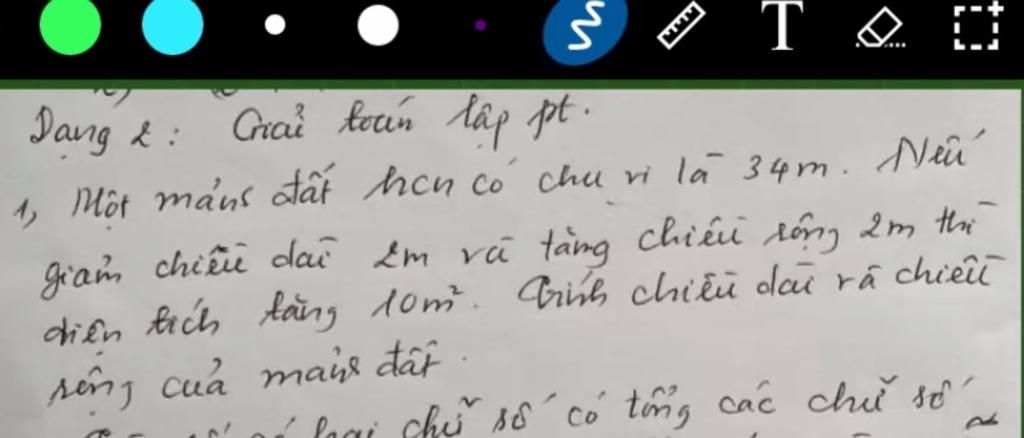 T
Dạng 2: Giải toán lập pt.
1, Một mảnh đất hcn có chu vi là 34m. Nếu
giảm chiều dài 2m và tăng chiều rộng 2m thì
diện tích tăng 10m². Tính chiều dài và chiều
rộng của mảnh đất.
số có hai chữ số có tổng các chữ số